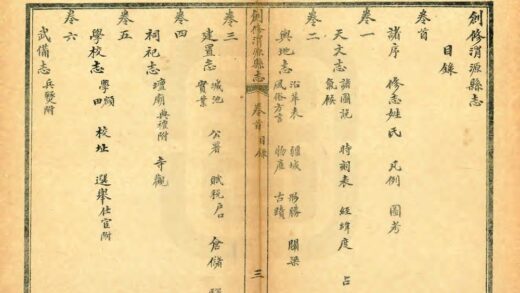 創修渭源縣志
目錄
卷首
諸序 修志姓氏 凡例 圖考
卷一
天文志 諸圖說 時祠表 經緯度 占
氣候
卷二
輿地志 沿革表 疆域 形勝 關梁
風俗方言 物產 古蹟
創修渭源縣志 卷首 目錄 三
卷三
建置志 城池 公署 賦稅戶口 倉儲
實業
卷四
祠祀志 壇廟典禮附 寺觀
卷五
學校志 學額 校址 選舉仕宦附
學田
卷六
武備志 兵燹附